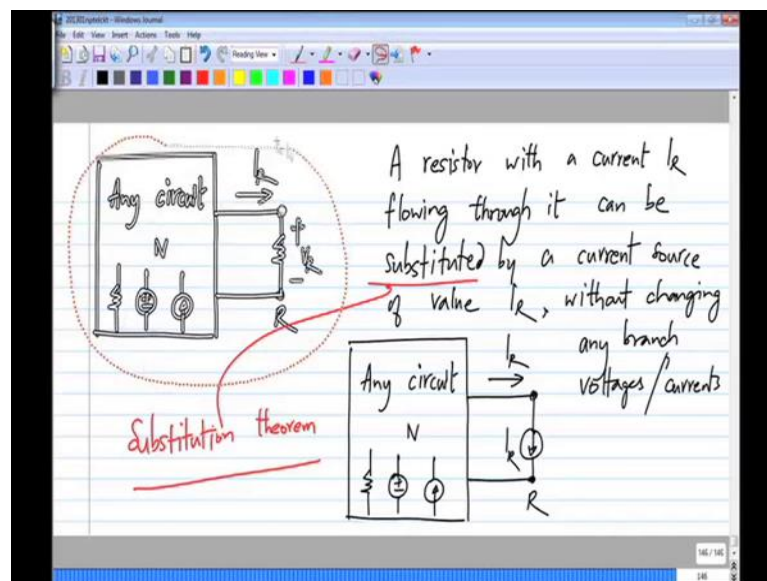 201301nptelckt - Windows Journal
File Edit View Insert Actions Tools Help
Reading View
B I
Any circuit
N
I_R
+
V_R
-
R
A resistor with a current I_R
flowing through it can be
substituted by a current source
of value I_R, without changing
any branch
voltages/currents
Substitution theorem
Any circuit
N
I_R
I_R
R
146 / 146
146